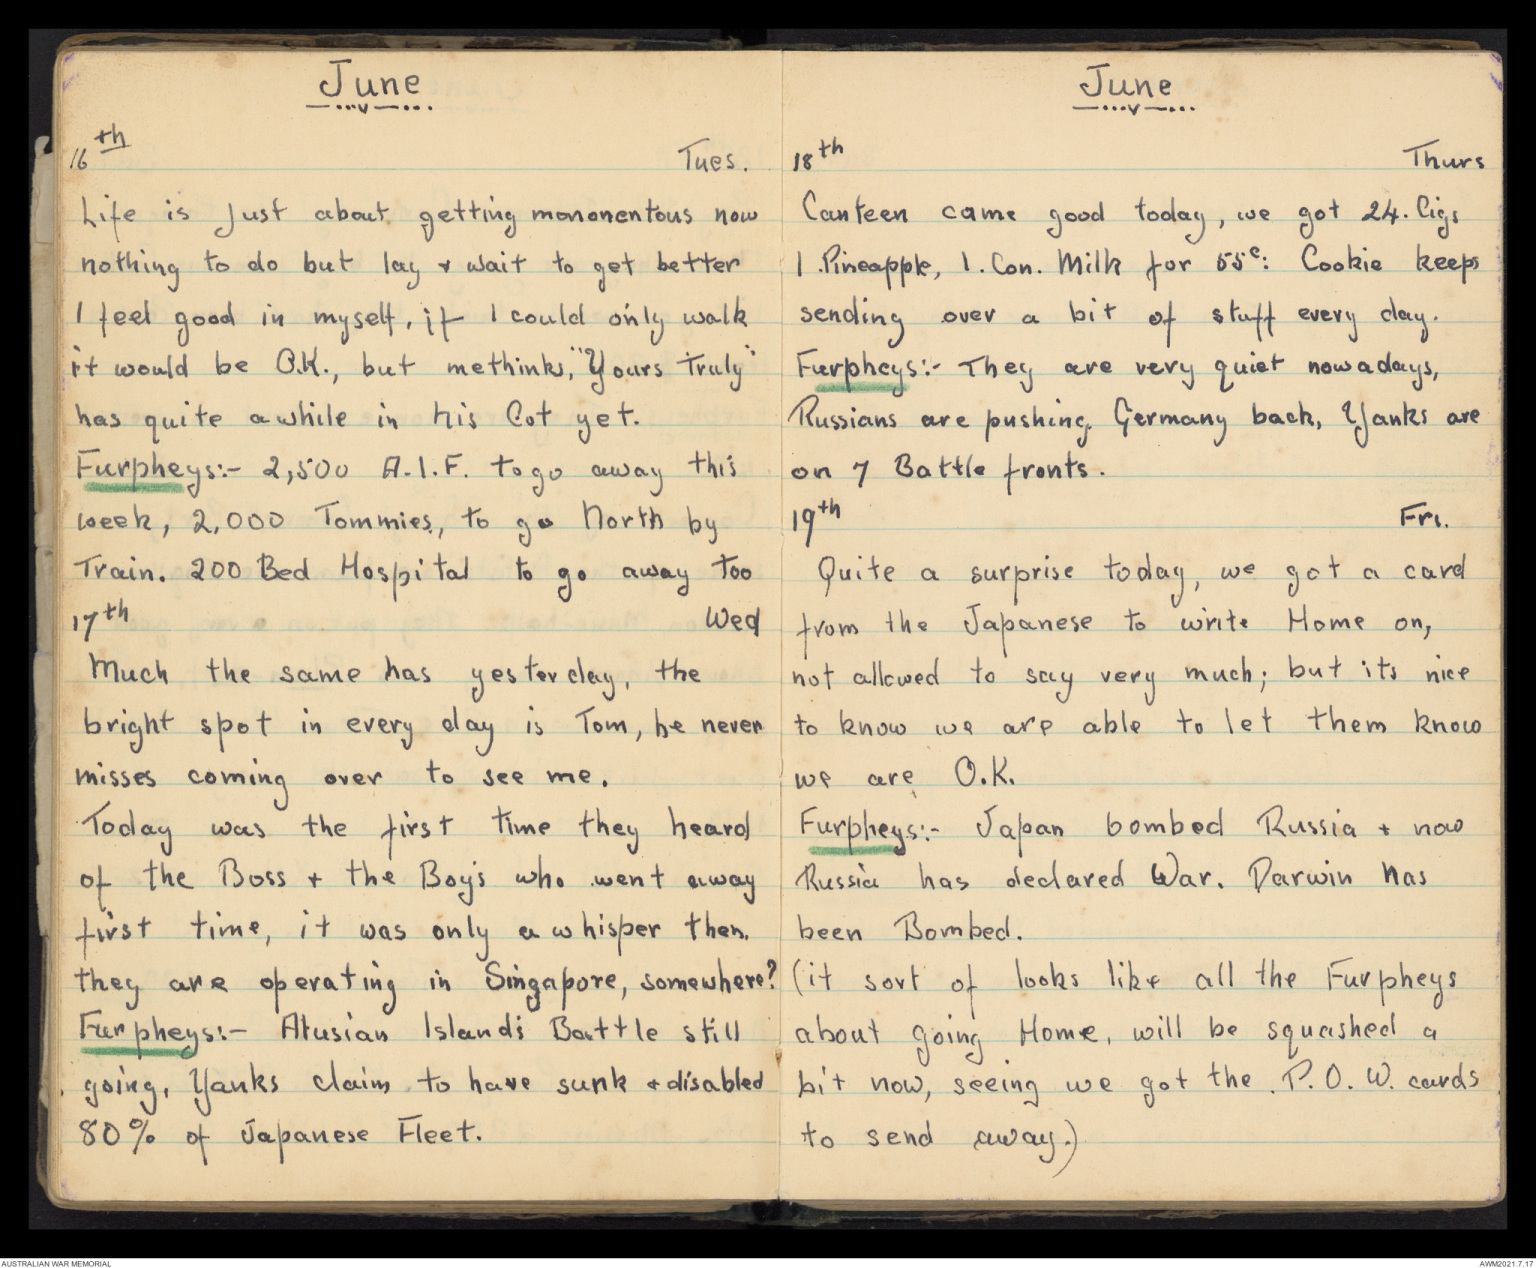 June
16th Tues.
Life is Just about getting mononentous now
nothing to do but lay + wait to get better
I feel good in myself, if I could only walk
it would be O.K., but methinks, "Yours Truly"
has quite awhile in his Cot yet.
Furpheys:- 2,500 A.I.F. to go away this
week, 2,000 Tommies, to go North by
Train. 200 Bed Hospital to go away too
17th Wed
Much the same has yesterday, the
bright spot in every day is Tom, he never
misses coming over to see me.
Today was the first time they heard
of the Boss + the Boys who went away
first time, it was only a whisper then,
they are operating in Singapore, somewhere?
Furpheys:- Alusian Islands Battle still
going, Yanks claim to have sunk + disabled
80% of Japanese Fleet.
June
18th Thurs
Canteen came good today, we got 24. Cigs
1. Pineapple, 1. Con. Milk for 55c: Cookie keeps
sending over a bit of stuff every day.
Furpheys:- They are very quiet nowadays,
Russians are pushing Germany back, Yanks are
on 7 Battle fronts.
19th Fri.
Quite a surprise today, we got a card
from the Japanese to write Home on,
not allowed to say very much; but its nice
to know we are able to let them know
we are O.K.
Furpheys:- Japan bombed Russia + now
Russia has declared War. Darwin has
been Bombed.
(it sort of looks like all the Furpheys
about going Home, will be squashed a
bit now, seeing we got the P.O.W. cards
to send away.)
AUSTRALIAN WAR MEMORIAL
AWM2021.7.17